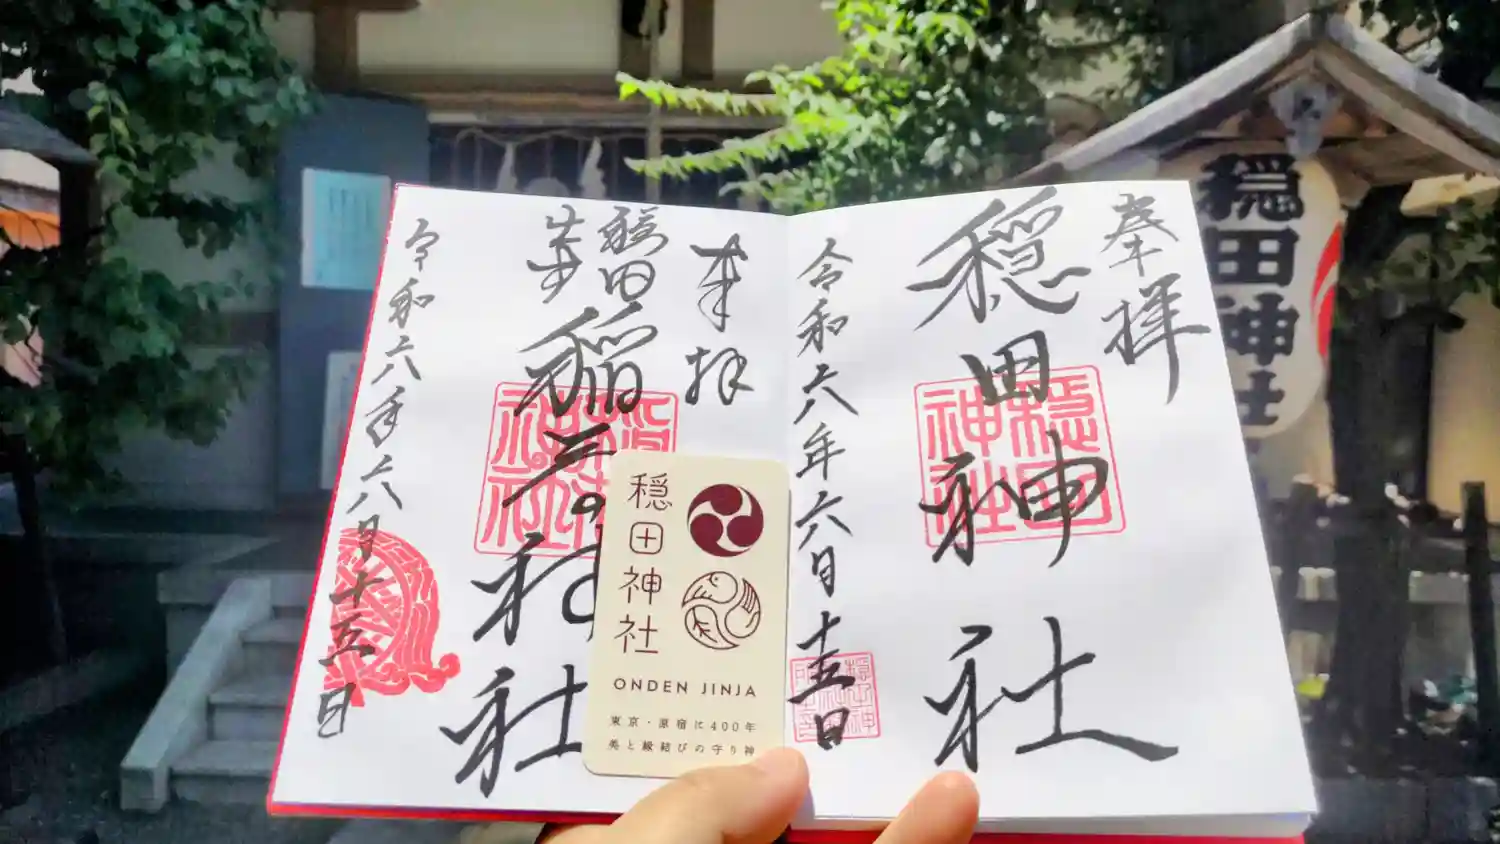 奉拝
穏田神社
令和六年六月十五日
穏田神社
奉拝
令和六年六月十五日
穏田神社
ONDEN JINJA
東京・原宿に400年
美と縁結びの守り神
穏田神社